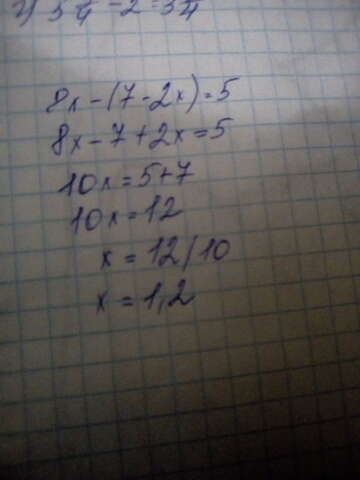 8x-(7-2x)=5
8x-7+2x=5
10x=5+7
10x=12
x=12/10
x=1,2